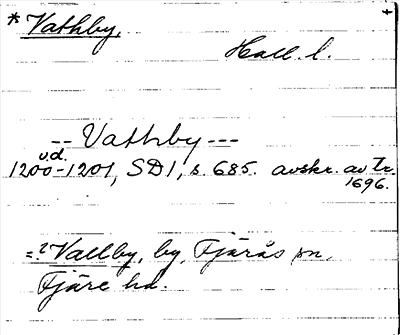 * Vathby, +
Hall. l.
-- Vathby ---
v.d.
1200-1201, SD1, s. 685. avskr. av Tr.
1696.
=? Vallby, by, Fjärås sn,
Fjäre hd.